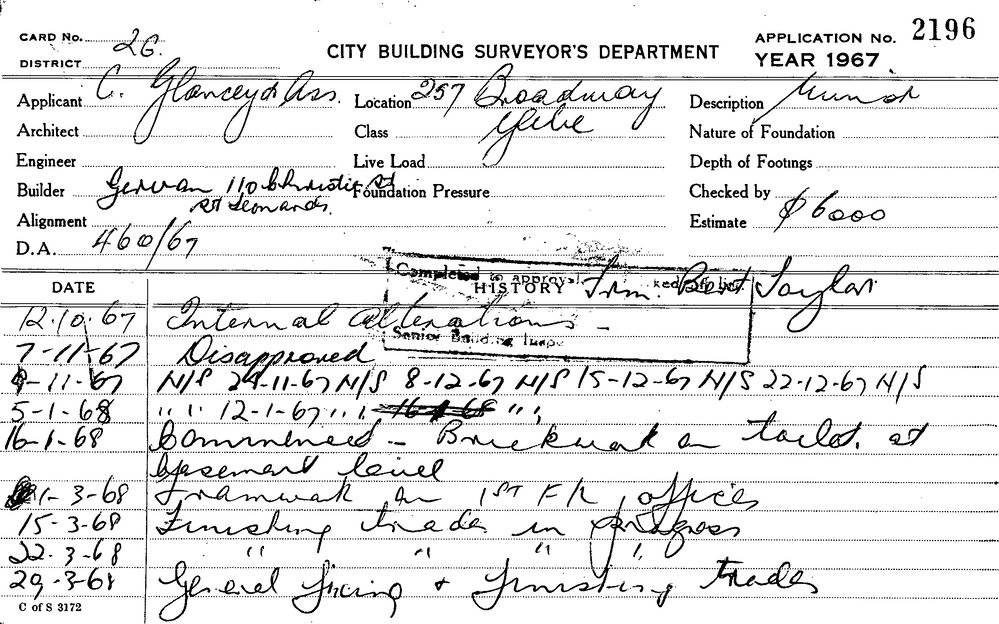 CARD No. 26
DISTRICT
CITY BUILDING SURVEYOR'S DEPARTMENT
APPLICATION No. 2196
YEAR 1967
Applicant C. Glancey & Ass.
Location 257 Broadway Glebe
Description
Architect
Class
Nature of Foundation
Engineer
Live Load
Depth of Footings
Builder Gervan 110 Christie St St Leonards.
Foundation Pressure
Checked by
Alignment
Estimate $6000
D.A. 460/67
Completed to approval
Senior Building Inspr
DATE
HISTORY
Frm. Bert Taylor
12.10.67 Internal alterations –
7-11-67 Disapproved
9-11-67 N/S 24-11-67 N/S 8-12-67 N/S 15-12-67 N/S 22-12-67 N/S
5-1-68 " " 12-1-67 " " 16-1-68 " "
16-1-68 Commenced – Brickwork on toilet. at
basement level
1-3-68 Framwork on 1ST FLR offices
15-3-68 Finishing trades in progress
22.3-68 " " " "
29-3-68 General fixing & finishing trades
C of S 3172